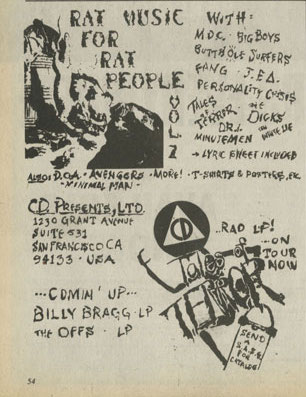 RAT MUSIC
FOR
RAT
PEOPLE
VOL. 2
WITH:
M.D.C. · BIG BOYS
BUTTHOLE SURFERS
FANG · J.F.A.
PERSONALITY CRISIS
TALES OF TERROR THE DICKS
D.R.I.
MINUTEMEN
→ LYRIC SHEET INCLUDED
ALSO: D.O.A. · AVENGERS · MORE! · T-SHIRTS & POSTERS, ETC
· MINIMAL MAN ·
CD. PRESENTS, LTD.
1230 GRANT AVENUE
SUITE 531
SAN FRANCISCO CA
94133 · USA
...RAD LP!
...ON
TOUR
NOW
...COMIN' UP...
BILLY BRAGG · LP
THE OFFS · LP
SEND
A
S.A.S.E.
FOR
CATALOG!
54